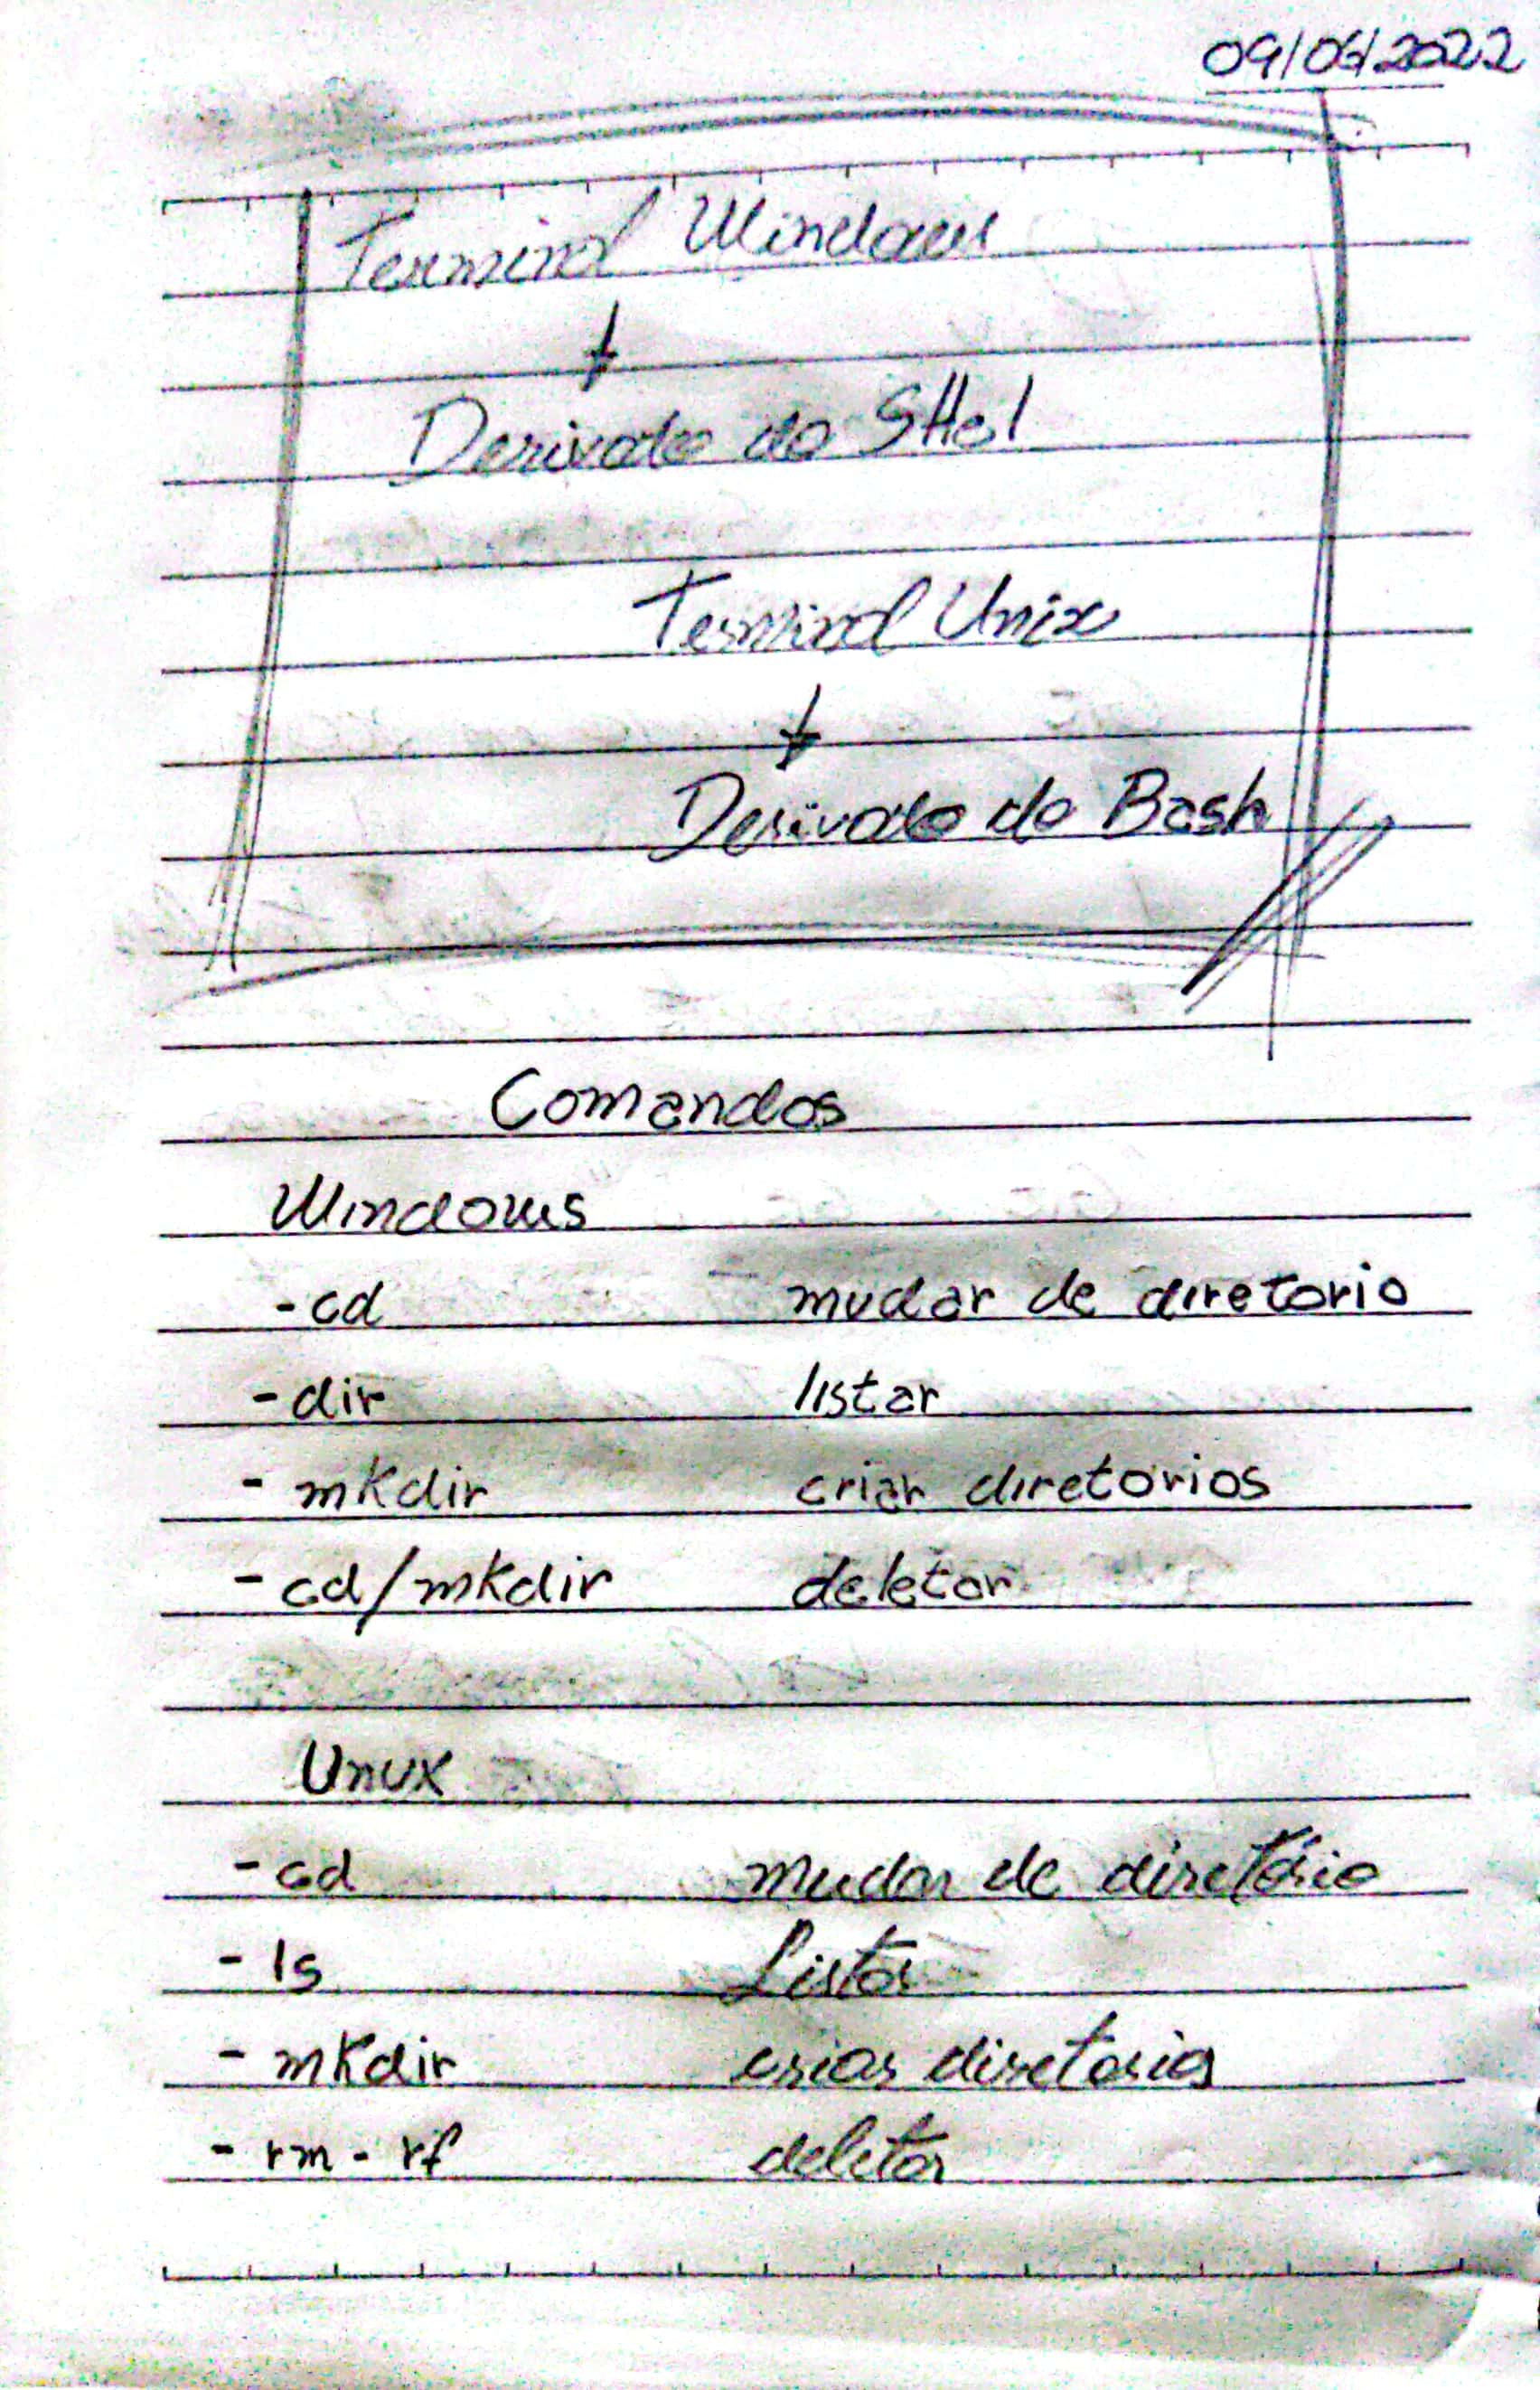 09/06/2022
Terminal Windows
Derivado do SHel
Terminal Unix
Derivado do Bash
Comandos
Windows
- cd mudar de diretorio
- dir listar
- mkdir criar diretorios
- cd/mkdir deletar
Unux
- cd mudar de diretório
- ls Listar
- mkdir criar diretorios
- rm - rf deletar